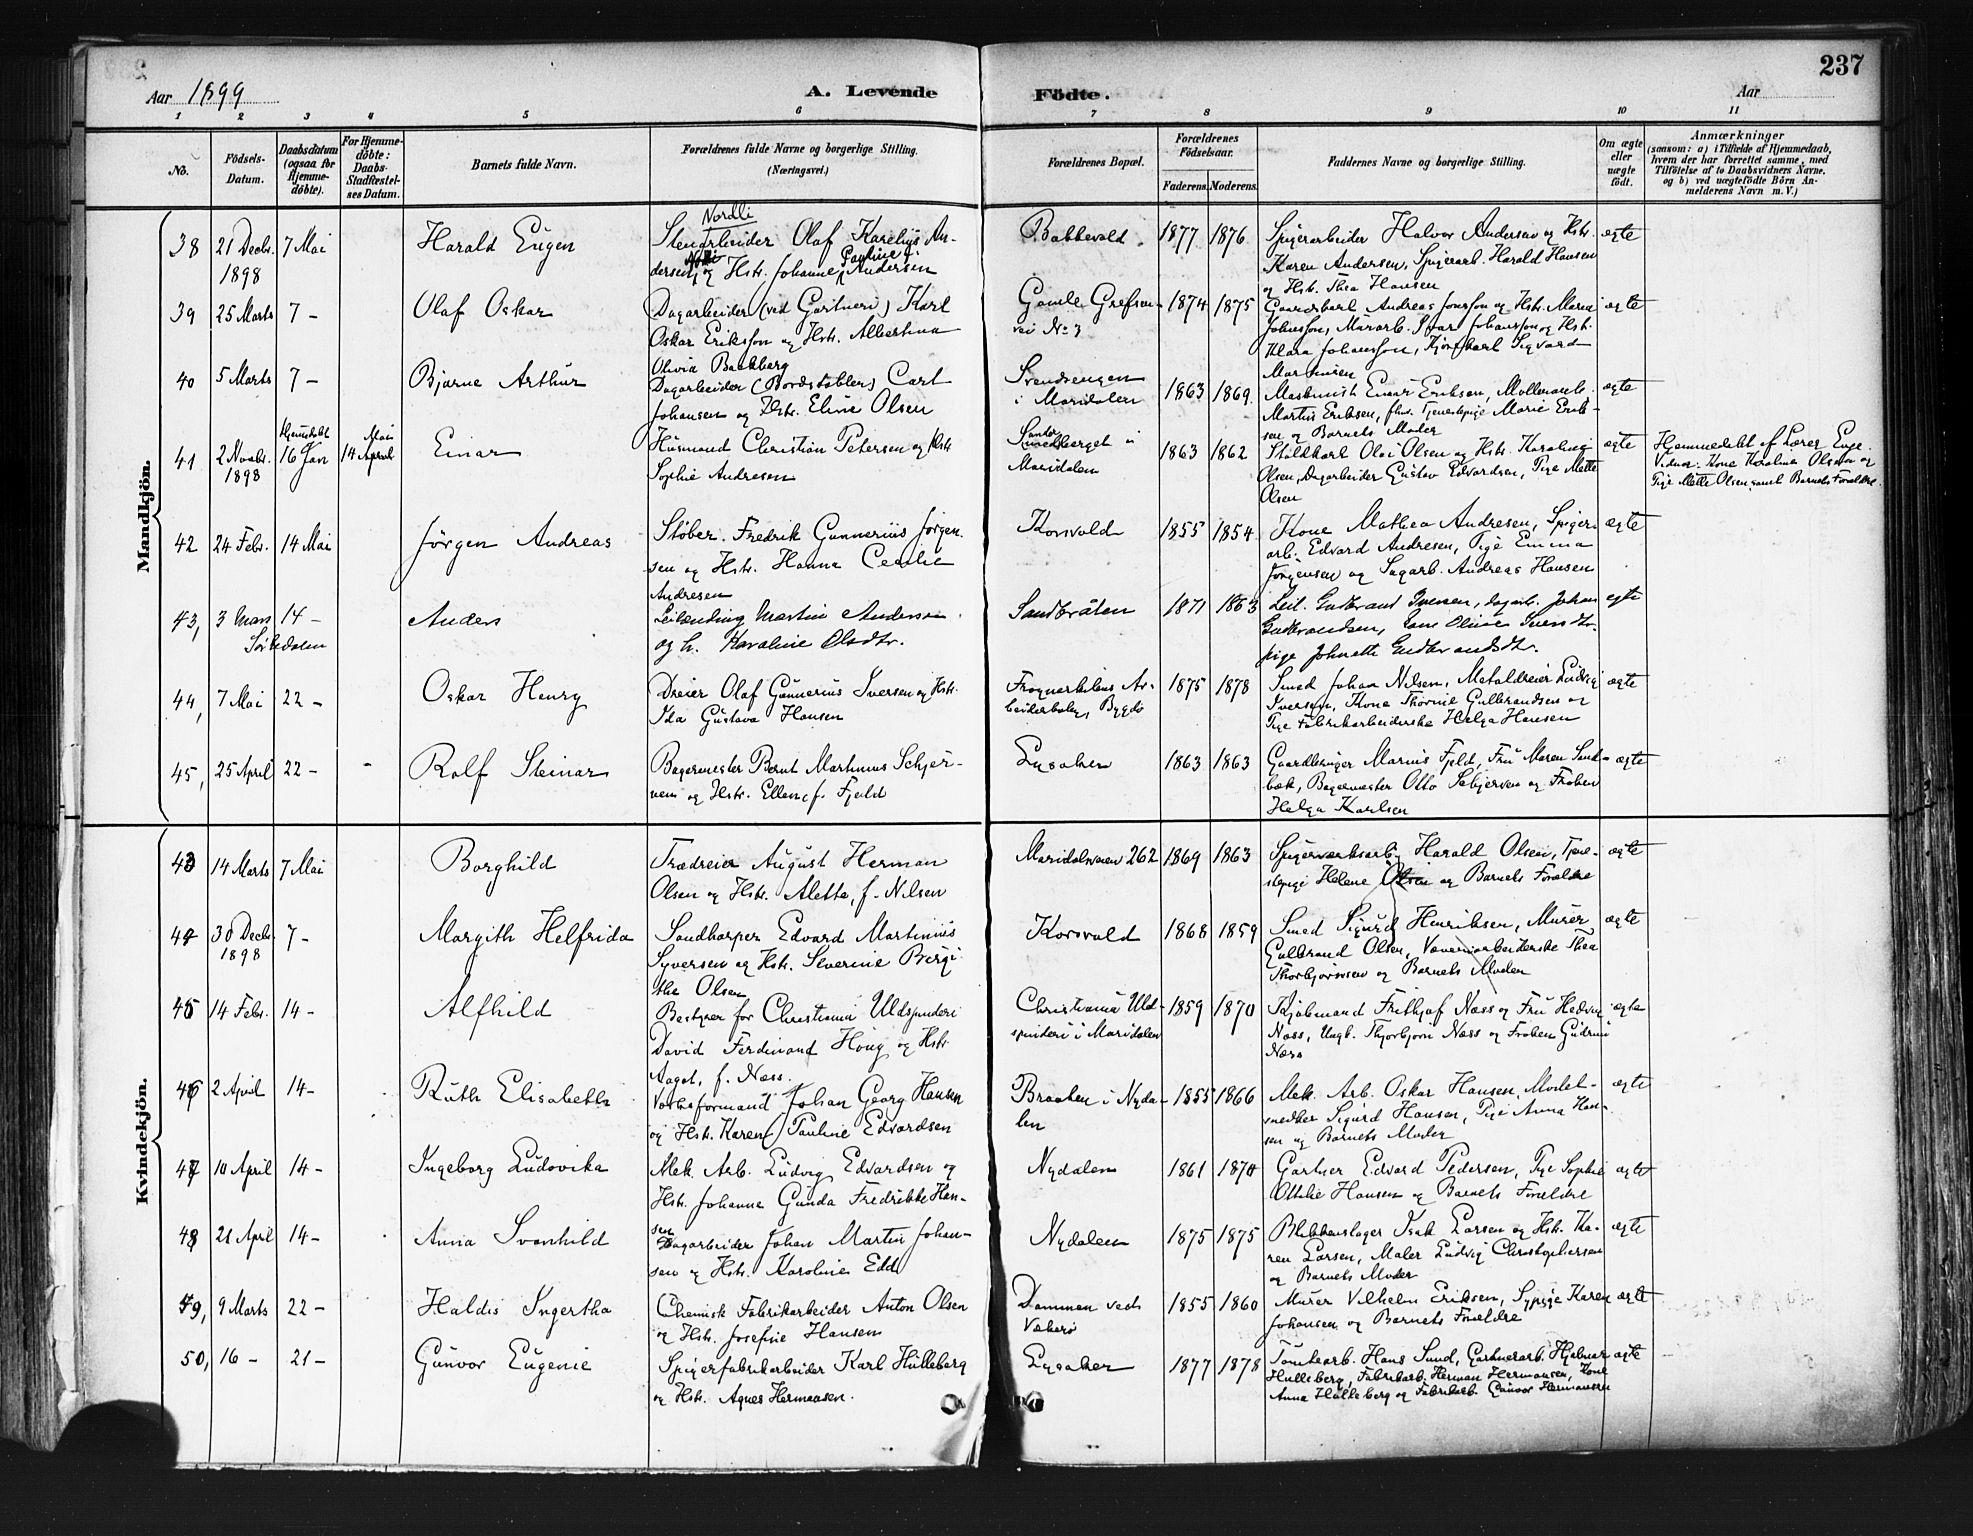 Aar 1899
A. Levende
Födte.
237
Aar
1 2 3 4 5 6 7 8 9 10 11
No.
Födsels-Datum.
Daabsdatum (ogsaa for Hjemmedöbte).
For Hjemmedöbte: Daabs-Stadfæstelses Datum.
Barnets fulde Navn.
Forældrenes fulde Navne og borgerlige Stilling. (Næringsvei.)
Forældrenes Bopæl.
Forældrenes Födselsaar.
Faderens. Moderens.
Faddernes Navne og borgerlige Stilling.
Om ægte eller uægte født.
Anmærkninger
(saasom: a) i Tilfælde af Hjemmedaab, hvem der har forrettet samme, med Tilföielse af to Daabsvidners Navne, og b) ved uægtefödte Börn Anmelderens Navn m. V.)
Mandkjön.
38 21 Decbr. 1898 7 Mai
Harald Eugen
Nordli
Stenarbeider Olaf Karelius Andersen og Hstr. Johanne Pauline Andersen
Bakkevold 1877 1876
Spigerarbeider Halvor Andersen og Hstr.
Karen Andersen, Spigerarb. Harald Hansen
og Hstr. Thea Hansen
ægte
39 25 Marts 7 –
Olaf Oskar
Dagarbeider (ved Gartneri) Karl
Oskar Eriksson og Hstr. Albertina
Olivia Backberg
Gamle Grefsenvei No 3 1874 1875
Gaardskarl Andreas Jonsson og Hstr. Maria
Johnsson, Murarb. Ivar Johansson og Hstr.
Klara Johansson, Kjørekarl Sigvard
Marthinsen
ægte
40 5 Marts 7 –
Bjarne Arthur
Dagarbeider (Bordstabler) Carl
Johansen og Hstr. Eline Olsen
Svendsengen
i Maridalen 1863 1869
Maskinist Einar Eriksen, Møllerarb.
Martin Eriksen, Tjenestepige Marie Eriksen og Barnets Moder
ægte
41 2 Novbr. 1898 Hjemmedøbt 16 Jan 14 Mai April
Einar
Husmand Christian Petersen og Hstr.
Sophie Andresen
Sanderberget i
Maridalen 1863 1862
Staldkarl Olai Olsen og Hstr. Karoline
Olsen, Dagarbeider Gustav Edvardsen, Pige Mette
Olsen
ægte
Hjemmedøbt af Lærer Enge.
Vidner: Kone Karoline Olsen og
Pige Mette Olsen, samt Barnets Forældre.
42 24 Febr. 14 Mai
Jørgen Andreas
Støber Fredrik Gunnerius Jørgensen og Hstr. Hanna Cecilie
Andresen
Korsvold 1855 1854
Kone Mathea Andresen, Spigerarb. Edvard Andresen, Pige Emma
Jørgensen og Sagarb. Andreas Hansen
ægte
43, 3 Mars 14 –
Sørkedalen
Anders
Leilending Martin Andersen
og h. Karoline Olsdtr.
Sandbråten 1871 1863
Leil. Gudbrand Iversen, dagarb. Johan
Gudbrandsen, Kone Oline Svensdtr.
pige Johnette Gudbrandsdtr.
egte
44, 7 Mai 22 –
Oskar Henry
Dreier Olaf Gunnerius Iversen og Hstr.
Ida Gustava Hansen
Frognerkilens Arbeiderbolig, Bygdø 1875 1878
Smed Johan Nilsen, Metaldreier Ludvig
Iversen, Kone Thorine Gulbrandsen og
Pige Fabrikarbeiderske Helga Hansen
ægte
45, 25 April 22 –
Rolf Steinar
Bagermester Bernt Martinius Schjerven og Hstr. Ellen, f. Fjeld
Lysaker 1863 1863
Gaardbruger Marius Fjeld, Fru Maren Sandbæk, Bagermester Otto Schjerven og Frøken
Helga Karlsen
ægte
Kvindekjön.
43 14 Marts 7 Mai
Borghild
Trædreier August Herman
Olsen og Hstr. Alette, f. Nilsen
Maridalsveien 262 1869 1863
Spigerværksarb. Harald Olsen, Tjenestepige Helene Olsen og Barnets Forældre
ægte
44 30 Decbr. 1898 7 –
Margith Helfrida
Sandharper Edvard Martinius
Syversen og Hstr. Severine Birgithe Olsen
Korsvold 1868 1859
Smed Sigurd Henriksen, Murer
Gulbrand Olsen, Væveriarbeiderske Thea
Thorbjørnsen og Barnets Moder
ægte
45 14 Febr. 14 –
Alfhild
Bestyrer for Christiania Uldspinderi
David Ferdinand Houg og Hstr.
Aagot, f. Næss.
Christiania Uldspinderi i Maridalen 1859 1870
Kjøbmand Frithjof Næss og Fru Hedvig
Næss, Ungk. Thorbjørn Næss og Frøken Gudrun
Næss
ægte
46 2 April 14 –
Ruth Elisabeth
Vægsformand Johan Georg Hansen
og Hstr. Karen Pauline Edvardsen
Braaten i Nydalen 1855 1866
Mek. Arb. Oskar Hansen, Modelsnedker Sigurd Hansen, Pige Anna Hansen og Barnets Moder
ægte
47 10 April 14 –
Ingeborg Ludovika
Mek. Arb. Ludvig Edvardsen og
Hstr. Johanna Gunda Fredrikke Hansen
Nydalen 1861 1870
Gartner Edvard Pedersen, Pige Sophie
Ottilie Hansen og Barnets Forældre
ægte
48 21 April 14 –
Anna Svanhild
Dagarbeider Johan Martin Johansen og Hstr. Karoline Edd
Nydalen 1875 1875
Blikkenslager Isak Larsen og Hstr. Karen Larsen, Maler Ludvig Christophersen
og Barnets Moder
ægte
49, 9 Marts 22 –
Haldis Ingertha
Chemisk Fabrikarbeider Anton Olsen
og Hstr. Josefine Hansen
Dammen ved
Vækerø 1855 1860
Murer Vilhelm Eriksen, Sypige Karen
Johansen og Barnets Forældre
ægte
50, 16 – 21 –
Gunvor Eugenie
Spigerfabrikarbeider Karl Hulleberg
og Hstr. Agnes Hermansen.
Lysaker 1877 1878
Tomtearb. Hans Sund, Gartnerarb. Hjalmar
Hulleberg, Fabrikarb. Herman Hermansen, Kone
Anna Hulleberg og Fabrikarb. Gunvor Hermansen
ægte